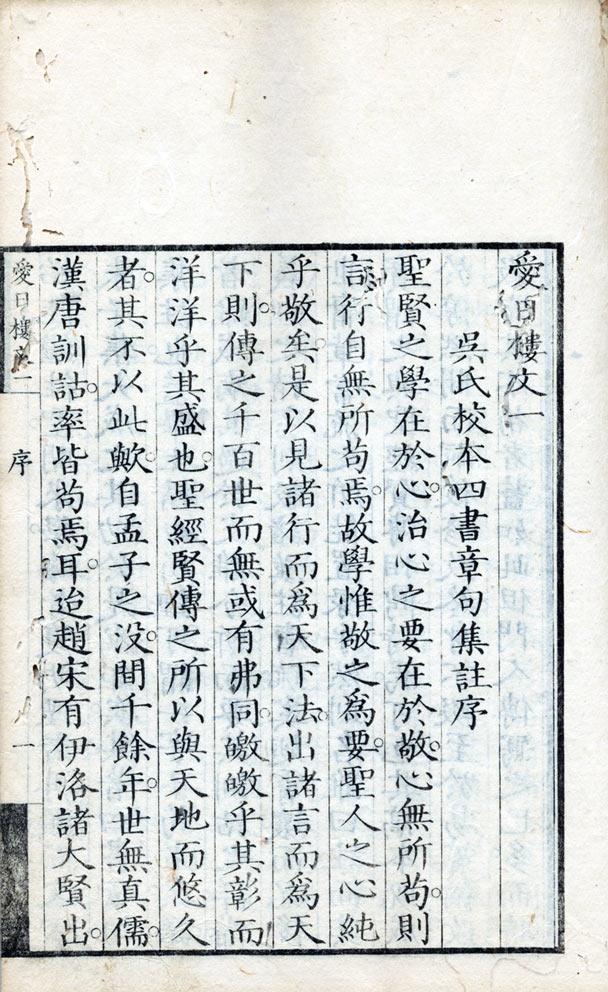 愛日樓文一
吳氏校本四書章句集註序
聖賢之學在於心。治心之要在於敬。心無所苟。則
言行自無所苟焉。故學惟敬之爲要。聖人之心純
乎敬矣。是以見諸行而爲天下法。出諸言而爲天
下則。傳之千百世而無或有弗同。皦皦乎其彰而
洋洋乎其盛也。聖經賢傳之所以與天地而悠久
者。其不以此歟。自孟子之沒。間千餘年。世無真儒。
漢唐訓詁。率皆苟焉耳。迨趙宋有伊洛諸大賢出。
愛日樓文一 序 一